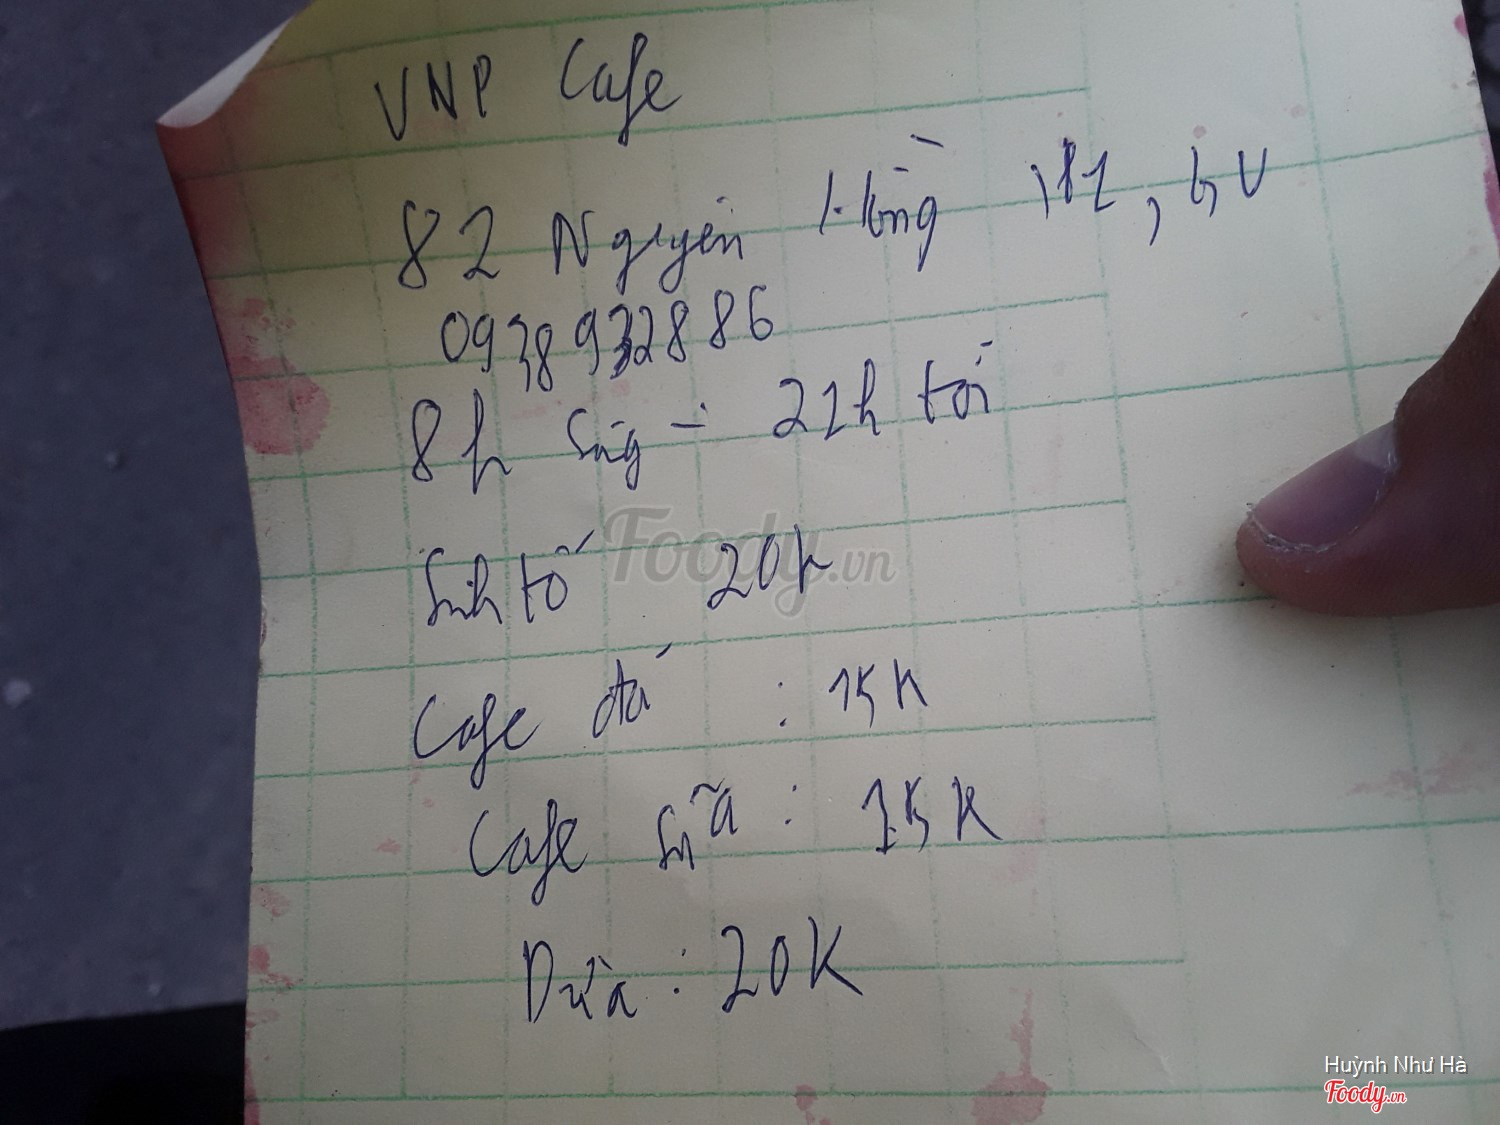 VNP Cafe
82 Nguyên Hồng P1, GV
0938932886
8h Sáng - 22h tối
Sinh tố 20k
Cafe đá : 15K
Cafe sữa : 15K
Dừa : 20K
Foody.vn
Huỳnh Như Hà
Foody.vn